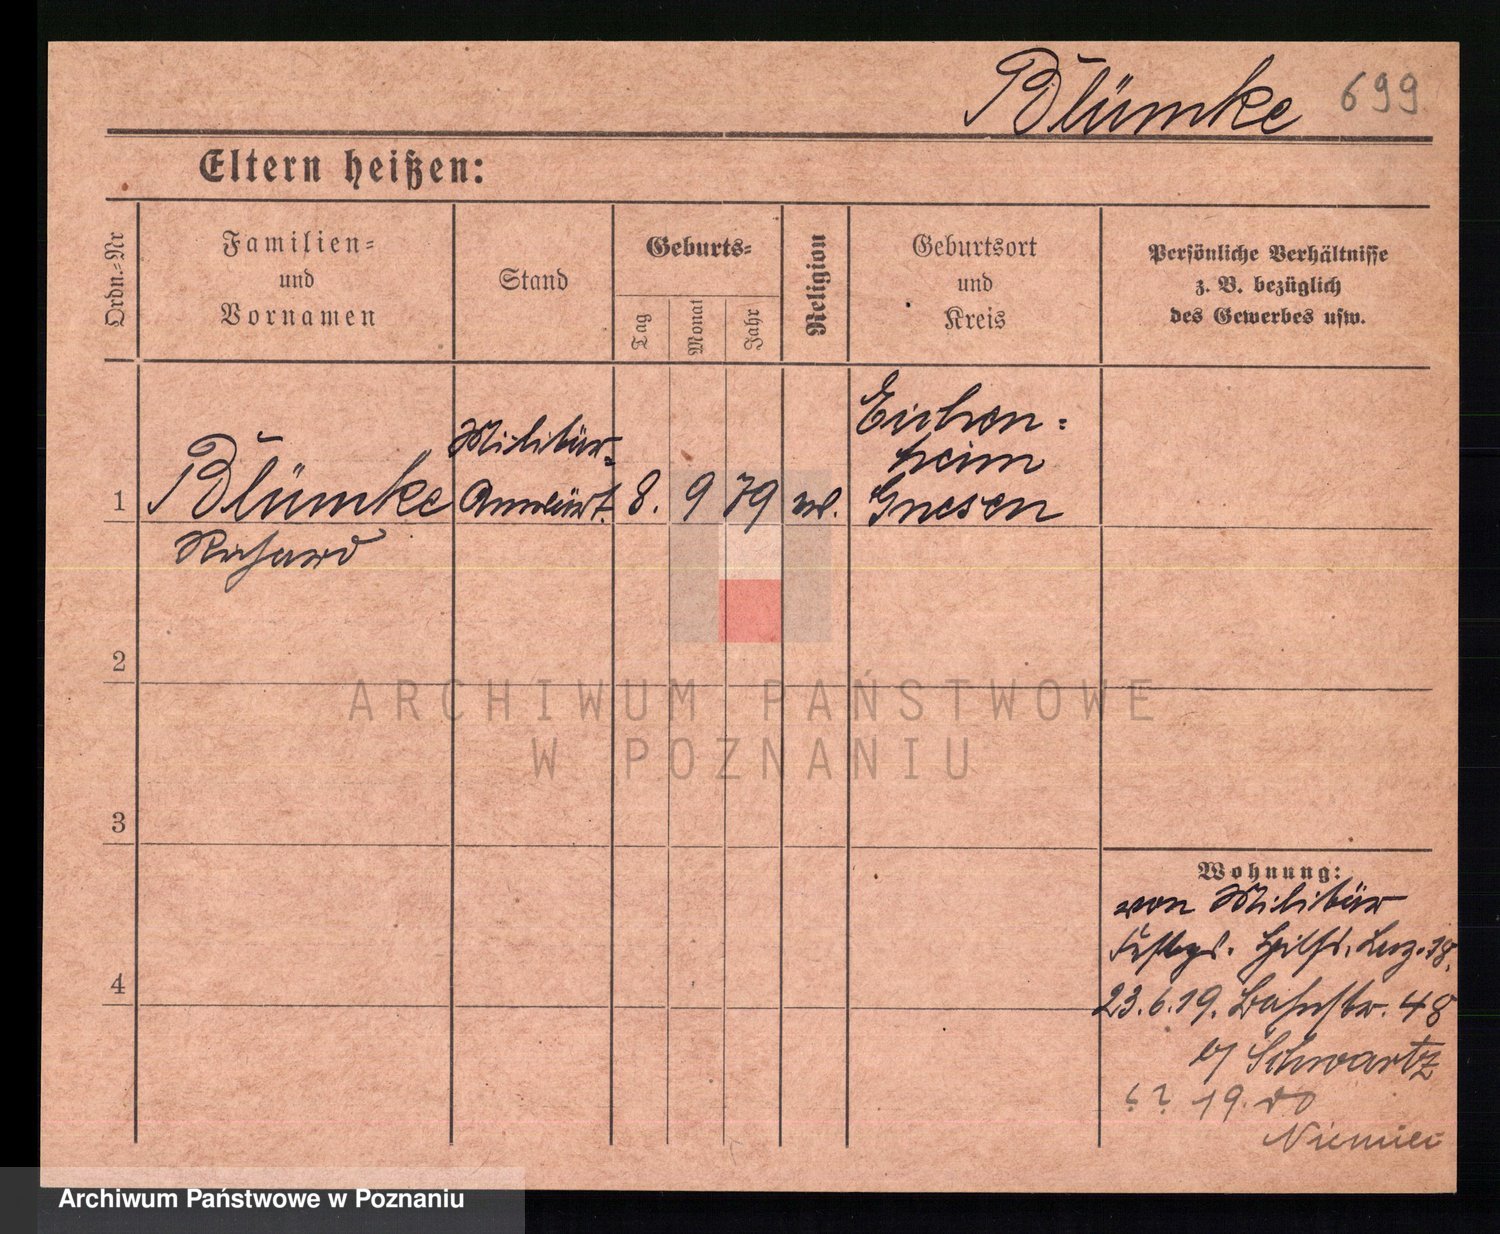 Blümke 699
Eltern heißen:
Ordn.=Nr
Familien=
und
Vornamen
Stand
Geburts=
Tag
Monat
Jahr
Religion
Geburtsort
und
Kreis
Persönliche Verhältnisse
z. B. bezüglich
des Gewerbes usw.
1
Blümke
Richard
Militär=
Anwärt.
8. 9 79
Eichen=
heim
Gnesen
2
3
4
Wohnung:
von Militär
Hilfs. Laz. 18.
23.6.19. Bahnstr. 48
b/ Schwartz
? ? 19. do
Niemiec
ARCHIWUM PAŃSTWOWE
W POZNANIU
Archiwum Państwowe w Poznaniu